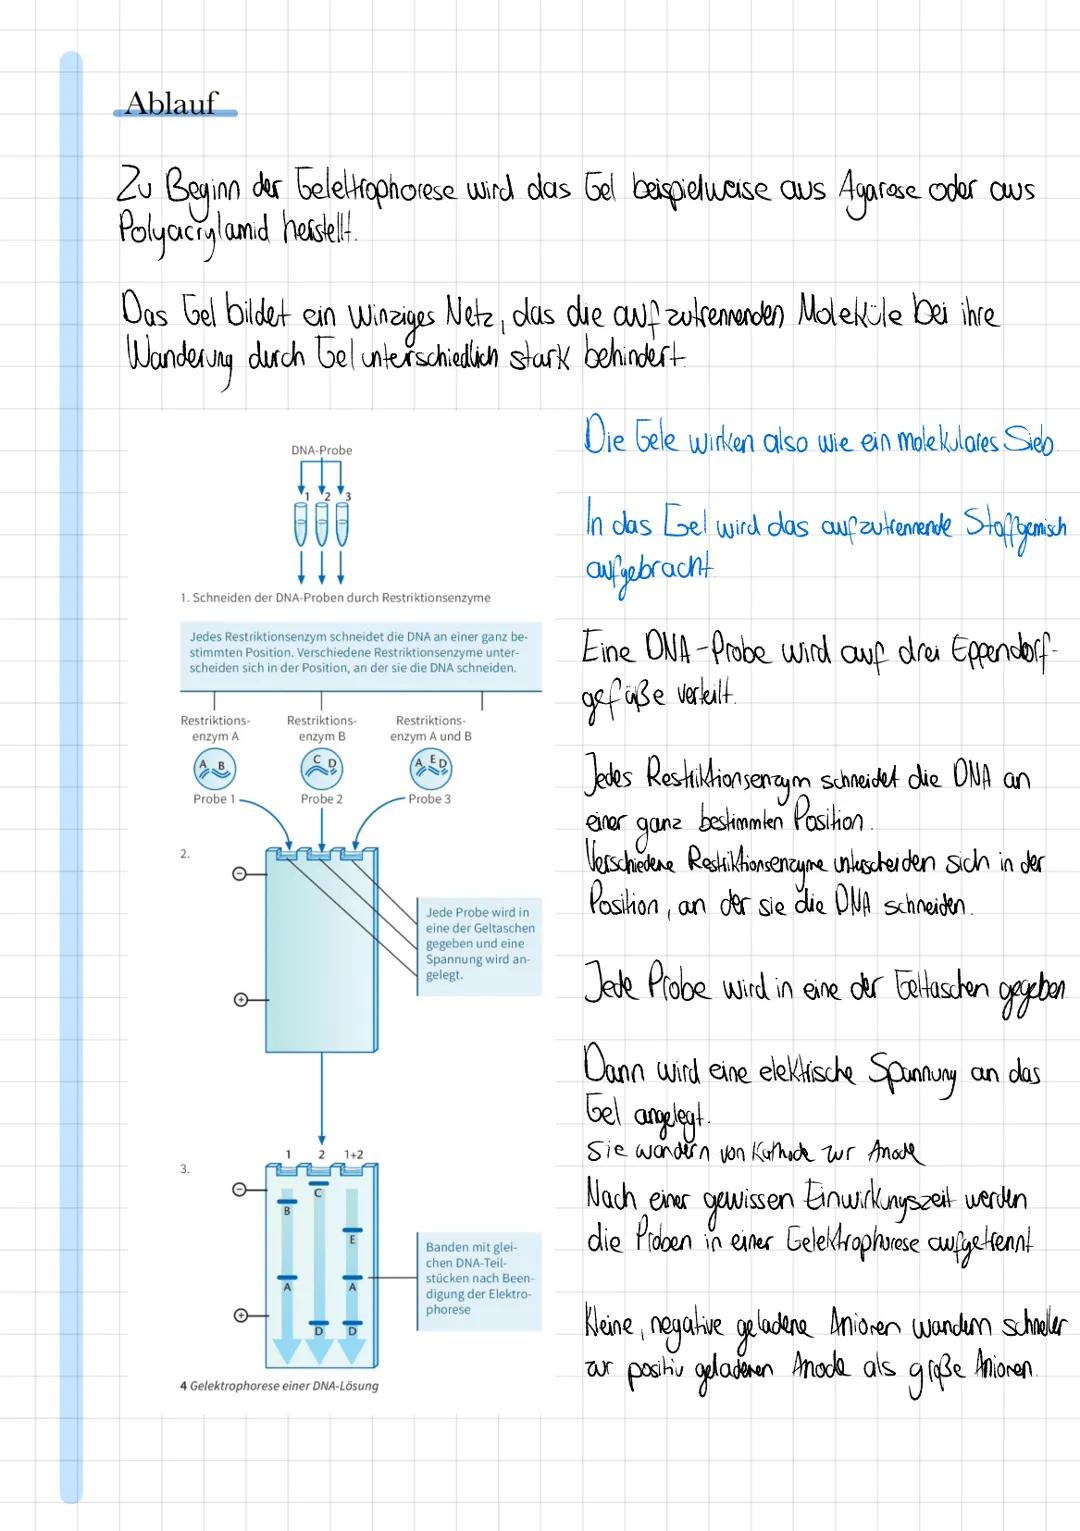 Ablauf
Zu Beginn der Gelektrophorese wird das Gel beispielweise aus Agarose oder aus
Polyacrylamid herstellt.
Das Gel bildet ein winziges Netz, das die aufzutrennenden Moleküle bei ihre
Wanderung durch Gel unterschiedlich stark behindert
Die Gele wirken also wie ein molekulares Sieb.
In das Gel wird das aufzutrennende Stoffgemisch
aufgebracht
Eine DNA-Probe wird auf drei Eppendorf-
gefäße verteilt.
Jedes Restriktionsenzym schneidet die DNA an
einer ganz bestimmten Position.
Verschiedene Restriktionsenzyme unterscheiden sich in der
Position, an der sie die DNA schneiden.
Jede Probe wird in eine der Geltaschen gegeben
Dann wird eine elektische Spannung an das
Gel angelegt.
Sie wandern von Kathode zur Anode
Nach einer gewissen Einwirkungszeit werden
die Proben in einer Gelektrophorese aufgetrennt
Kleine, negative geladene Anionen wandern schneller
zur positiv geladenen Anode als große Anionen.
DNA-Probe
1 2 3
1. Schneiden der DNA-Proben durch Restriktionsenzyme
Jedes Restriktionsenzym schneidet die DNA an einer ganz be-
stimmten Position. Verschiedene Restriktionsenzyme unter-
scheiden sich in der Position, an der sie die DNA schneiden.
Restriktions-
enzym A
Restriktions-
enzym B
Restriktions-
enzym A und B
A B
C D
A E D
Probe 1
Probe 2
Probe 3
2.
−
+
Jede Probe wird in
eine der Geltaschen
gegeben und eine
Spannung wird an-
gelegt.
3.
1 2 1+2
−
C
B
E
A A
+
D D
Banden mit glei-
chen DNA-Teil-
stücken nach Been-
digung der Elektro-
phorese
4 Gelektrophorese einer DNA-Lösung